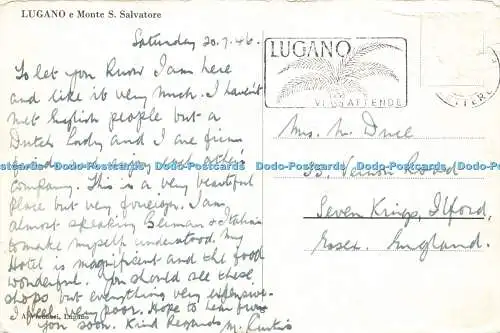 LUGANO e Monte S. Salvatore
Saturday 20.7.46.
To let you know I am here
and like it very much. I haven't
met English people but a
Dutch Lady and I are firm
friends and enjoy each other's
company. This is a very beautiful
place but very foreign. I am
almost speaking German & Italian
to make myself understood. My
Hotel is magnificent and the food
wonderful. You should see these
shops but everything very expensive.
I feel very poor. Hope to hear from
you soon. Kind Regards M. Curtis
Lugano
LUGANO
VI ATTENDE
LETTERE
Mrs. N. Duce
33, Vernon Road
Seven Kings, Ilford,
Essex. England.
Dodo-Postcards Dodo-Postcards Dodo-Postcards Dodo-Postcards Dodo-Postcards